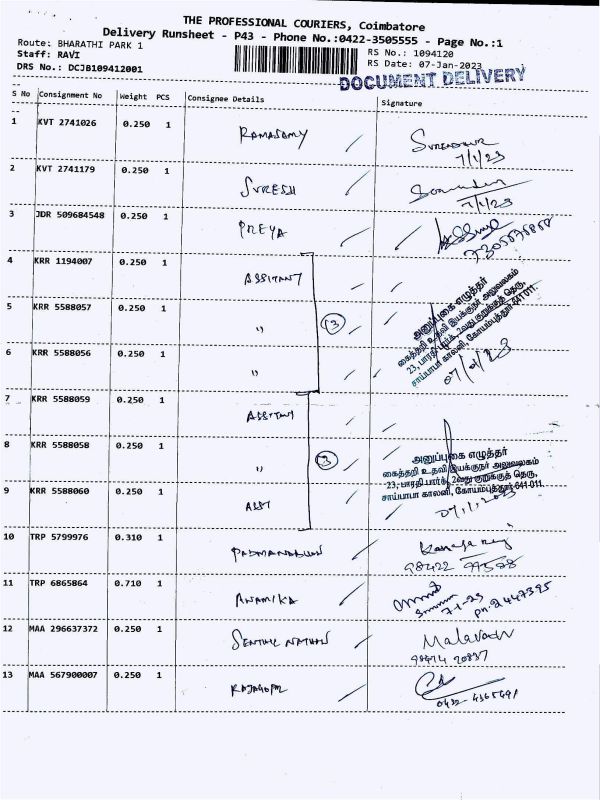 THE PROFESSIONAL COURIERS, Coimbatore
Delivery Runsheet - P43 - Phone No.:0422-3505555 - Page No.:1
Route: BHARATHI PARK 1
RS No.: 1094120
Staff: RAVI
RS Date: 07-Jan-2023
DRS No.: DCJB109412001
DOCUMENT DELIVERY
S No Consignment No Weight PCS Consignee Details Signature
1 KVT 2741026 0.250 1 RAMASAMY
7/1/23
2 KVT 2741179 0.250 1 SURESH
7/1/23
3 JDR 509684548 0.250 1 PREYA
4 KRR 1194007 0.250 1 ASSITANT
5 KRR 5588057 0.250 1 " 3
6 KRR 5588056 0.250 1 "
அனுப்புகை எழுத்தர்
கைத்தறி உதவி இயக்குநர் அலுவலகம்
23, பாரதி பார்க், 2வது குறுக்குத் தெரு,
சாய்பாபா காலனி, கோயம்புத்தூர் 641 011.
7 KRR 5588059 0.250 1 ASSITANT
8 KRR 5588058 0.250 1 " 3
9 KRR 5588060 0.250 1 ASST
அனுப்புகை எழுத்தர்
கைத்தறி உதவி இயக்குநர் அலுவலகம்
23, பாரதி பார்க், 2வது குறுக்குத் தெரு,
சாய்பாபா காலனி, கோயம்புத்தூர் 641 011.
10 TRP 5799976 0.310 1 PADMANABHAN
98422 99578
11 TRP 6865864 0.710 1 ANAMIKA
7-1-23
12 MAA 296637372 0.250 1 SENTHIL NATHAN
98414 20837
13 MAA 567900007 0.250 1 RAJAGOPAL